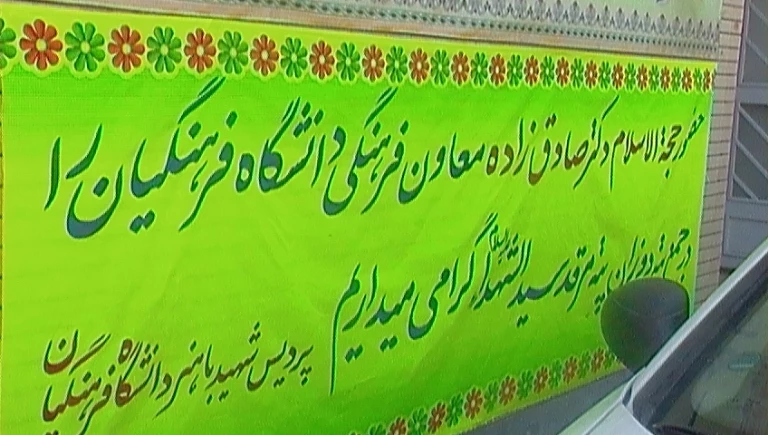 حضور حجة الاسلام دکتر صادق زاده معاون فرهنگی دانشگاه فرهنگیان را
در جمع مرقد سید الشهدا گرامی میداریم
پردیس شهید باهنر دانشگاه فرهنگیان